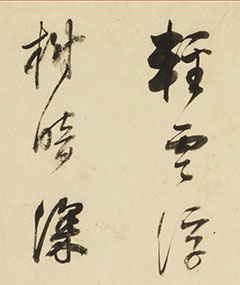 輕雲浮
樹暗深